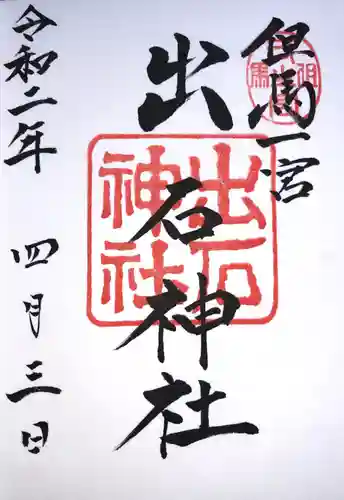 但馬一宮
出石神社
出石神社
令和二年 四月三日